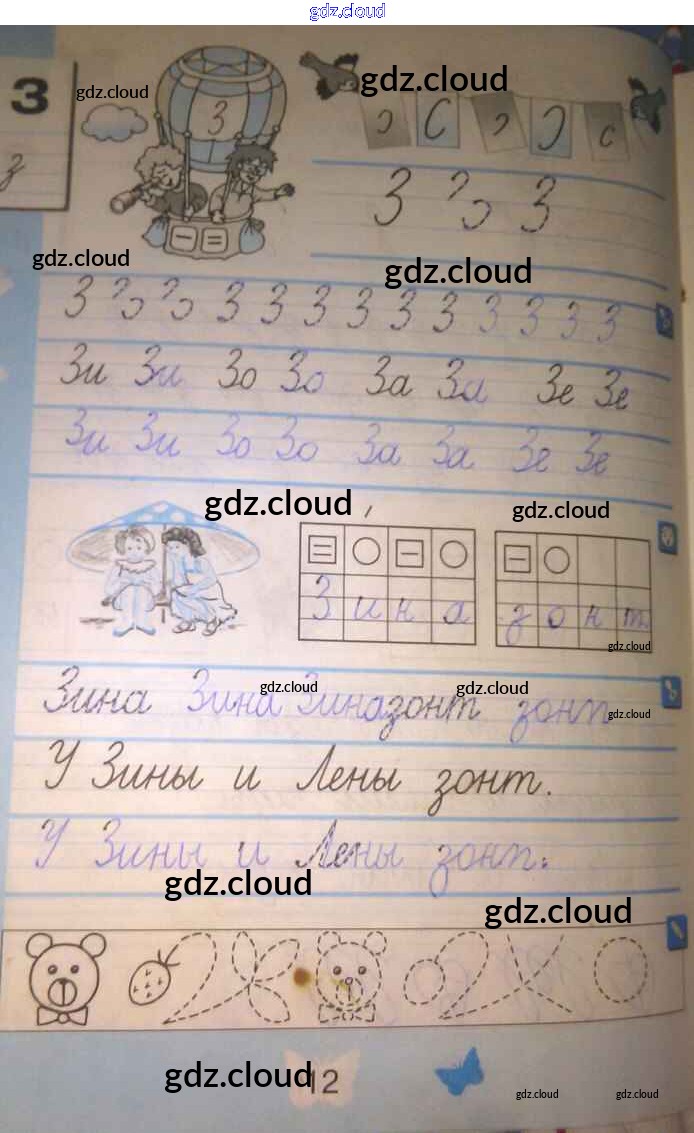 gdz.cloud
З
gdz.cloud
gdz.cloud
з
З
З З
gdz.cloud
gdz.cloud
З З З З З З З З З З З
Зи Зи Зо Зо За За Зе Зе
Зи Зи Зо Зо За За Зе Зе
gdz.cloud
gdz.cloud
З и н а з о н т
gdz.cloud
gdz.cloud
gdz.cloud
Зина Зина Зина зонт зонт
gdz.cloud
У Зины и Лены зонт.
У Зины и Лены зонт.
gdz.cloud
gdz.cloud
gdz.cloud
12
gdz.cloud
gdz.cloud